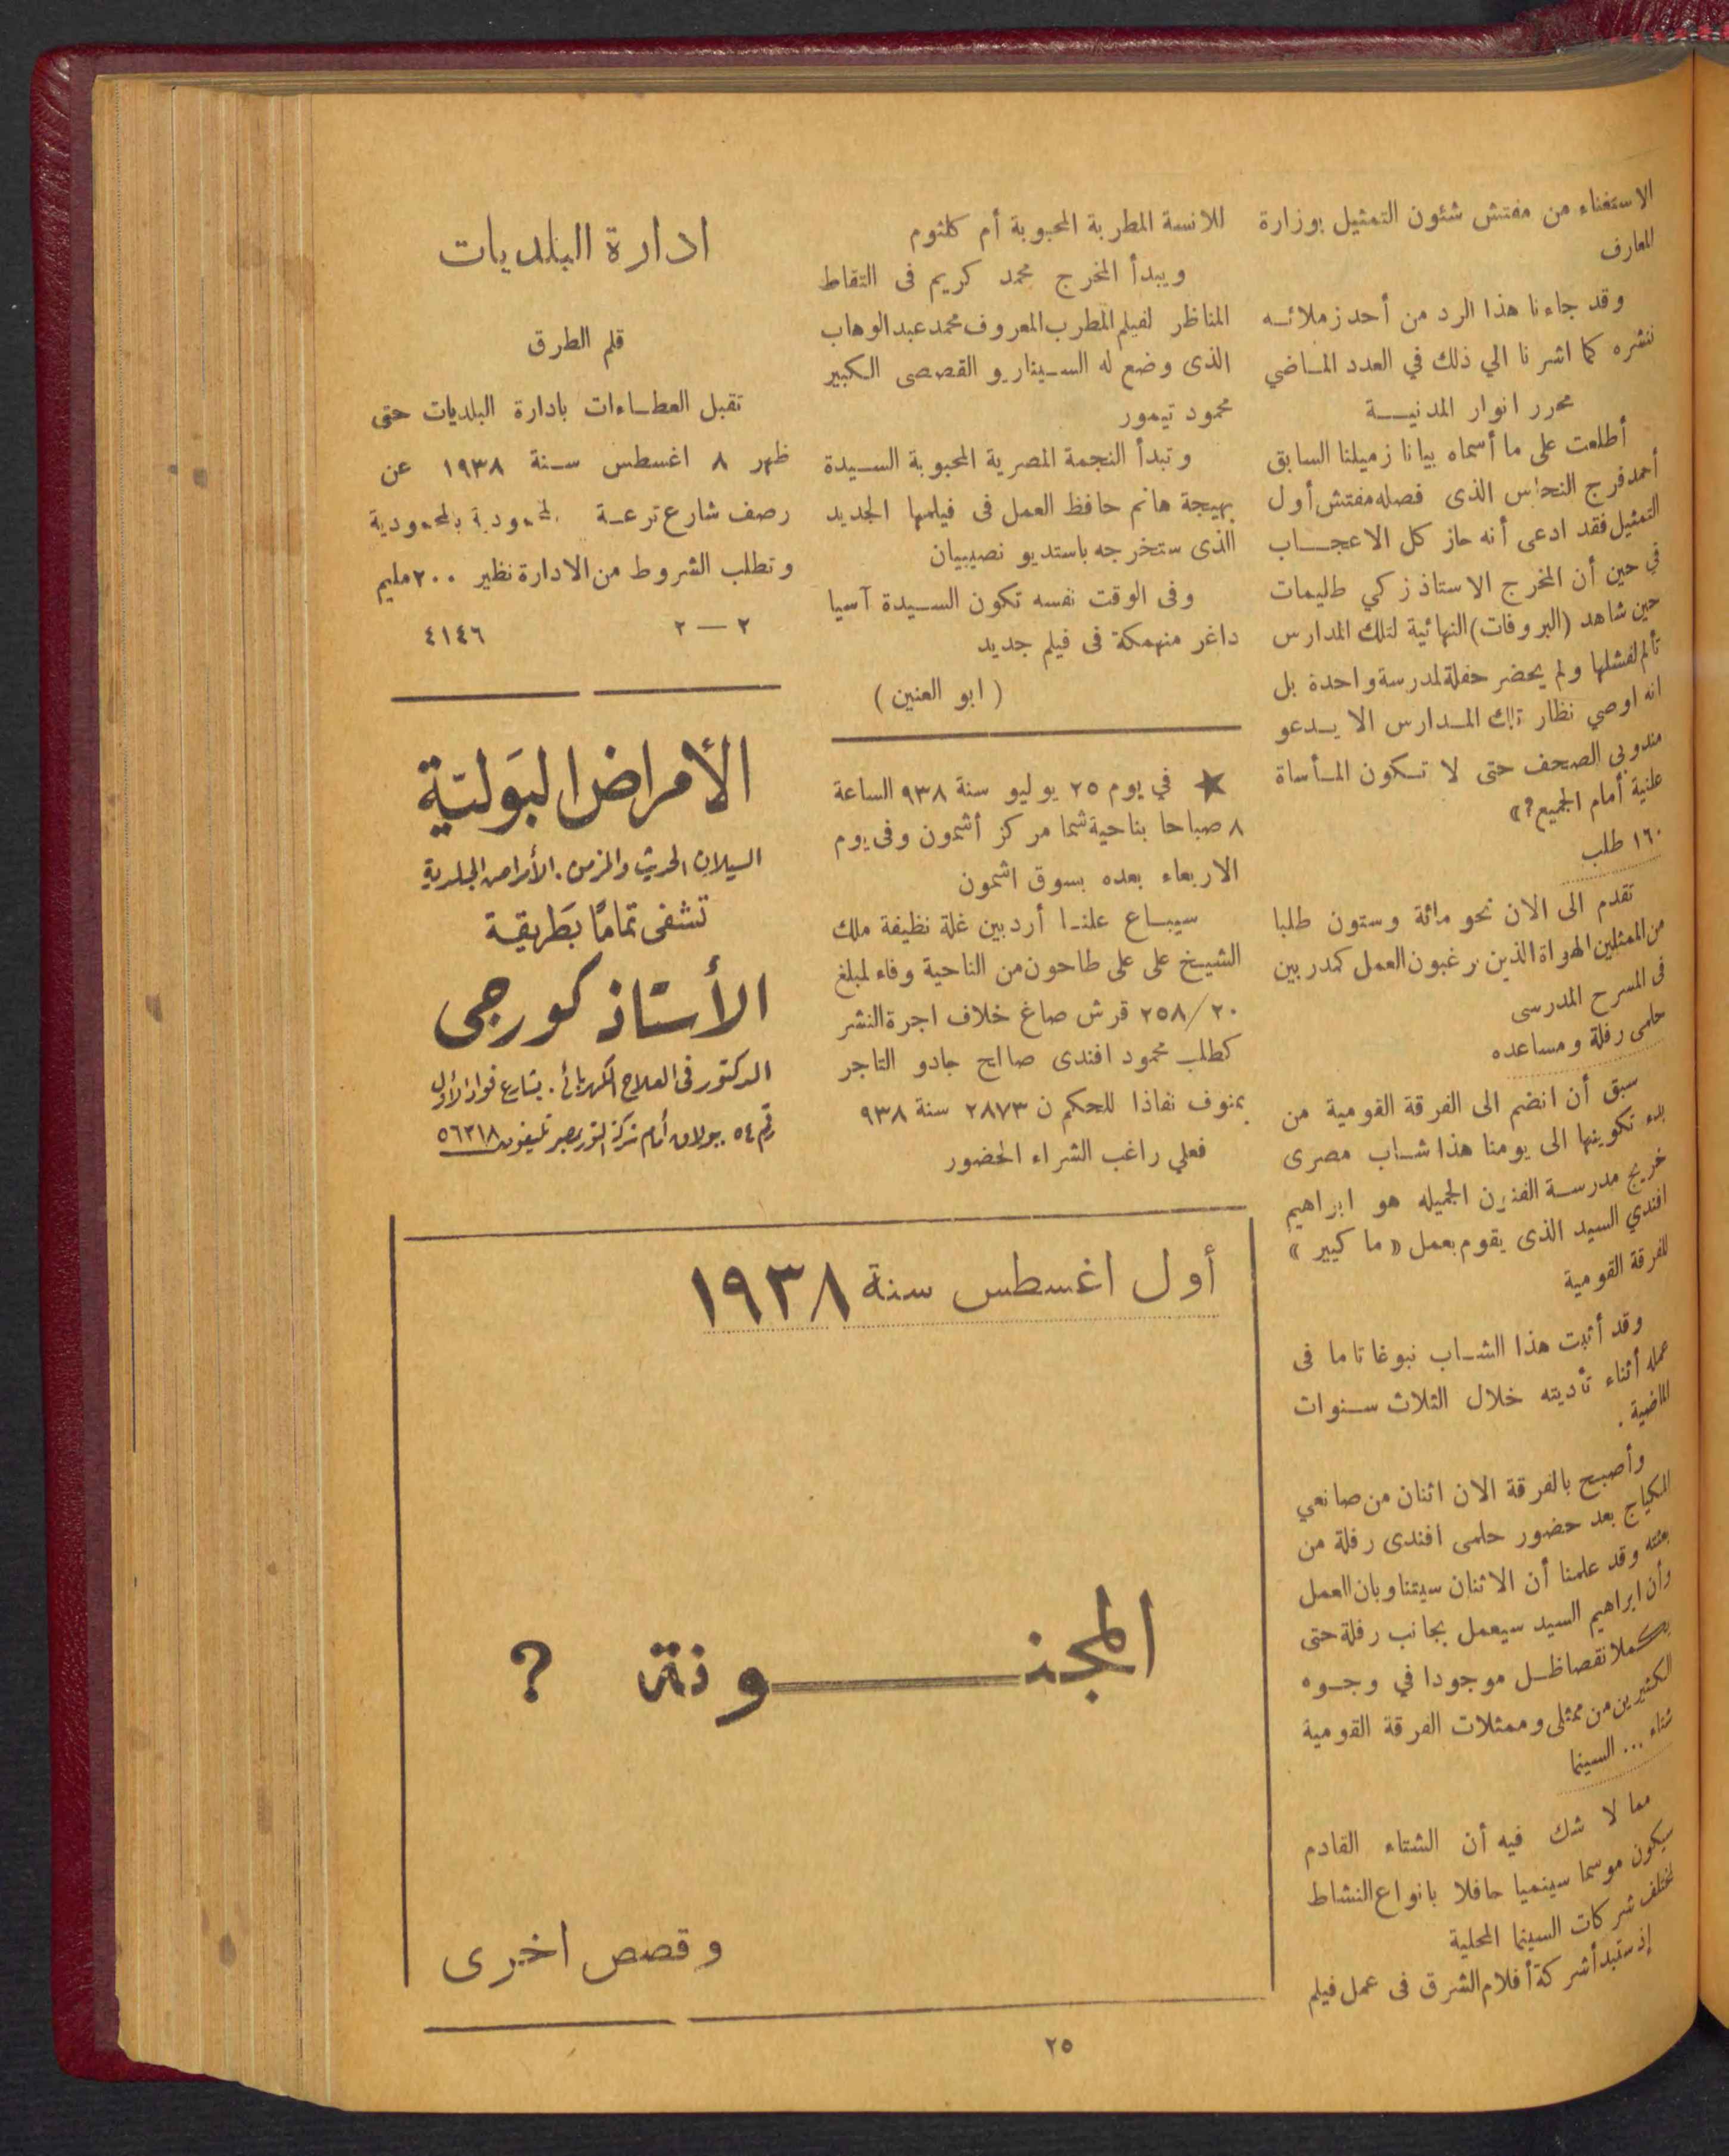 الاستغناء من مفتش شئون التمثيل بوزارة
المعارف
وقد جاءنا هذا الرد من أحد زملائه
ننشره كما اشرنا الي ذلك في العدد الماضي
محرر انوار المدنية
أطلعت على ما أسماه بيانا زميلنا السابق
أحمد فرج النحاس الذى فصله مفتش أول
التمثيل فقد ادعى أنه حاز كل الاعجاب
في حين أن المخرج الاستاذ زكي طليمات
حين شاهد (البروفات) النهائية لتلك المدارس
تألم لفشلها ولم يحضر حفلة لمدرسة واحدة بل
انه اوصي نظار تلك المدارس الا يدعو
مندوبي الصحف حتى لا تكون المأساة
علنية أمام الجميع؟»
١٦٠ طلب
تقدم الى الان نحو مائة وستون طلبا
من الممثلين الهواة الذين يرغبون العمل كمدربين
فى المسرح المدرسى
حلمى رفلة ومساعده
سبق أن انضم الى الفرقة القومية من
بدء تكوينها الى يومنا هذا شاب مصرى
خريج مدرسة الفنون الجميله هو ابراهيم
افندي السيد الذى يقوم بعمل «ما كيير»
للفرقة القومية
وقد أثبت هذا الشاب نبوغا تاما فى
عمله أثناء تأديته خلال الثلاث سنوات
الماضية .
وأصبح بالفرقة الان اثنان من صانعي
المكياج بعد حضور حلمى افندى رفلة من
بعثته وقد علمنا أن الاثنان سيتناوبان العمل
وأن ابراهيم السيد سيعمل بجانب رفلة حتى
يكملا نقصا ظل موجودا في وجوه
الكثيرين من ممثلى وممثلات الفرقة القومية
شتاء ... السينما
مما لا شك فيه أن الشتاء القادم
سيكون موسما سينميا حافلا بانواع النشاط
لمختلف شركات السينما المحلية
إذ ستبدأ شركة أفلام الشرق فى عمل فيلم
للانسة المطربة المحبوبة أم كلثوم
ويبدأ المخرج محمد كريم فى التقاط
المناظر لفيلم المطرب المعروف محمد عبد الوهاب
الذى وضع له السيناريو القصصى الكبير
محمود تيمور
وتبدأ النجمة المصرية المحبوبة السيدة
بهيجة هانم حافظ العمل فى فيلمها الجديد
الذى ستخرجه باستديو نصيبيان
وفى الوقت نفسه تكون السيدة آسيا
داغر منهمكة فى فيلم جديد
( ابو العنين )
★ في يوم ٢٥ يوليو سنة ٩٣٨ الساعة
٨ صباحا بناحية شما مركز أشمون وفى يوم
الاربعاء بعده بسوق اشمون
سيباع علنا أردبين غلة نظيفة ملك
الشيخ على على طاحون من الناحية وفاء لمبلغ
٢٥٨/٢٠ قرش صاغ خلاف اجرة النشر
كطلب محمود افندى صالح جادو التاجر
بمنوف نفاذا للحكم ن ٢٨٧٣ سنة ٩٣٨
فعلي راغب الشراء الحضور
ادارة البلديات
قلم الطرق
تقبل العطاءات بادارة البلديات حتى
ظهر ٨ اغسطس سنة ١٩٣٨ عن
رصف شارع ترعة المحمودية بالمحمودية
وتطلب الشروط من الادارة نظير ٢٠٠ مليم
٢ — ٢ ٤١٤٦
الأمراض البَوليّة
السيلان الحديث والمزمن . الأمراض الجلدية
تشفى تمامًا بطَريقية
الأستاذ كورجى
الدكتور فى العلاج الكهربائى . بشارع فواد الأول
رقم ٥٤ ببولاق أمام شركة النور بمصر تليفون ٥٦٢١٨
أول اغسطس سنة ١٩٣٨
المجنونة ؟
وقصص اخرى
٢٥